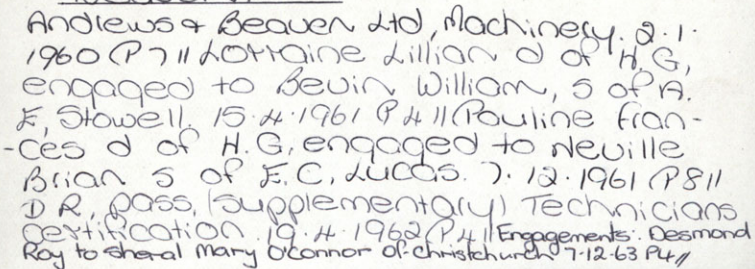 Andrews & Beaven Ltd, Machinery. 2.1.
1960 (P7)// Lorraine Lillian d of H.G,
engaged to Bevin William, s of A.
E, Stowell. 15.4.1961 P4// (Pauline Fran-
-ces d of H.G, engaged to Neville
Brian s of E.C, Lucas. 7.12.1961 (P8//
D R, pass, (supplementary) Technicians
certification. 19.4.1962 (P.4// Engagements: Desmond
Roy to Sheral Mary O'Connor of Christchurch 7-12-63 P4//